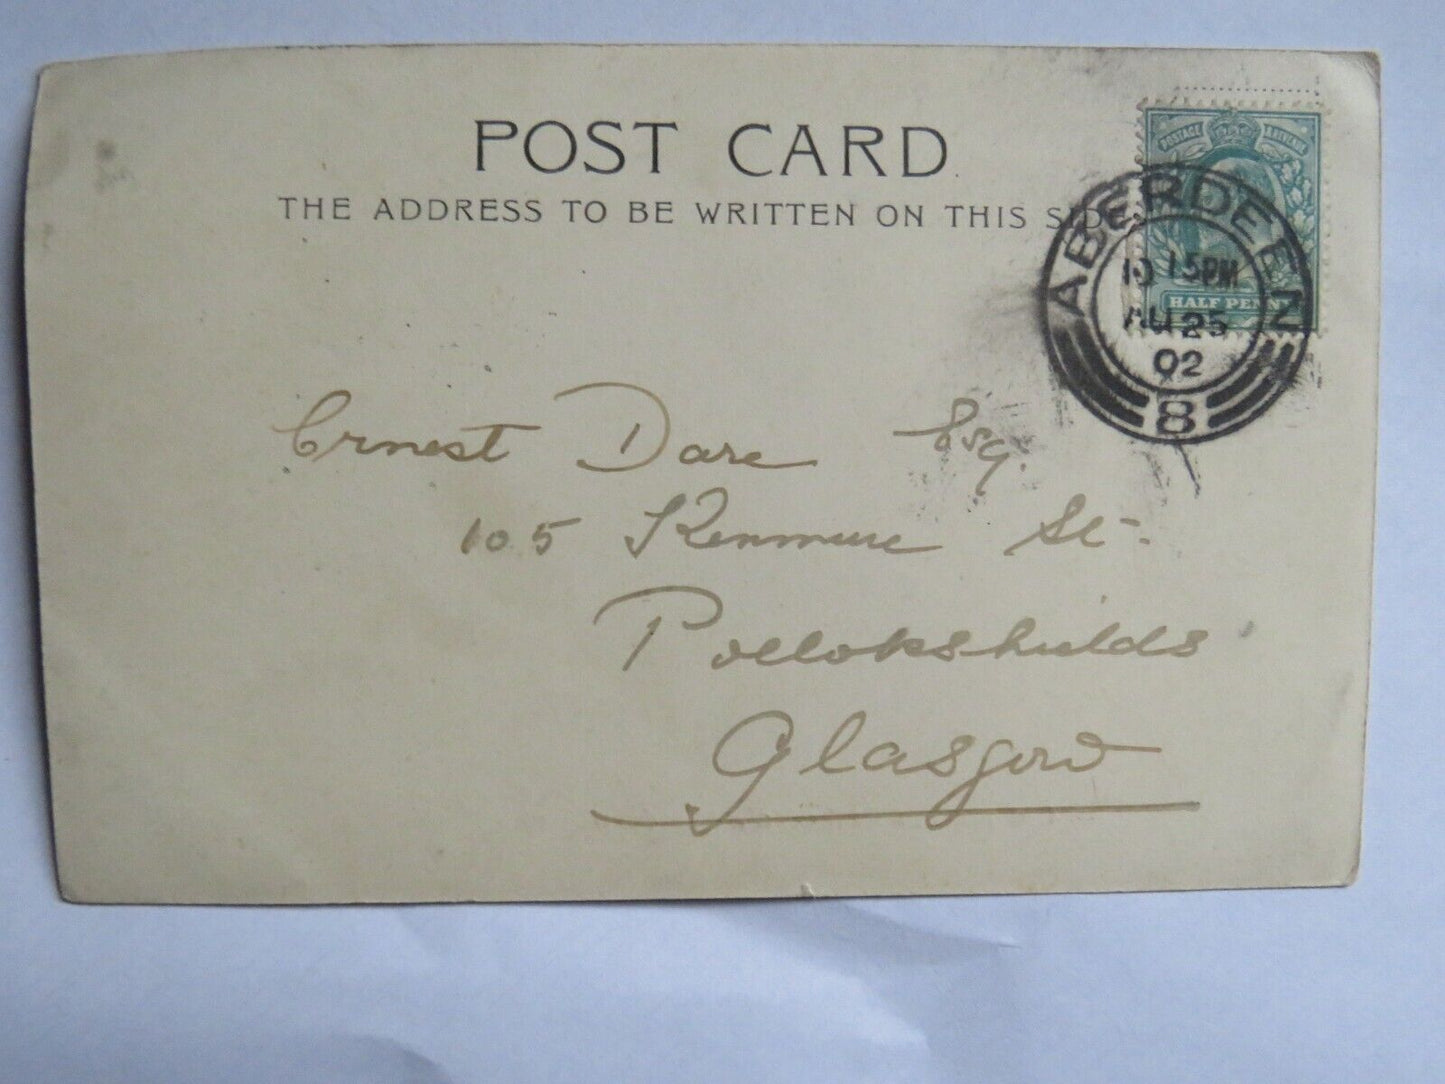 POST CARD
THE ADDRESS TO BE WRITTEN ON THIS SIDE
POSTAGE & REVENUE
HALF PENNY
ABERDEEN
10 15PM
AU 25
02
8
Ernest Dare Esq.
105 Kenmure St.
Pollokshields
Glasgow